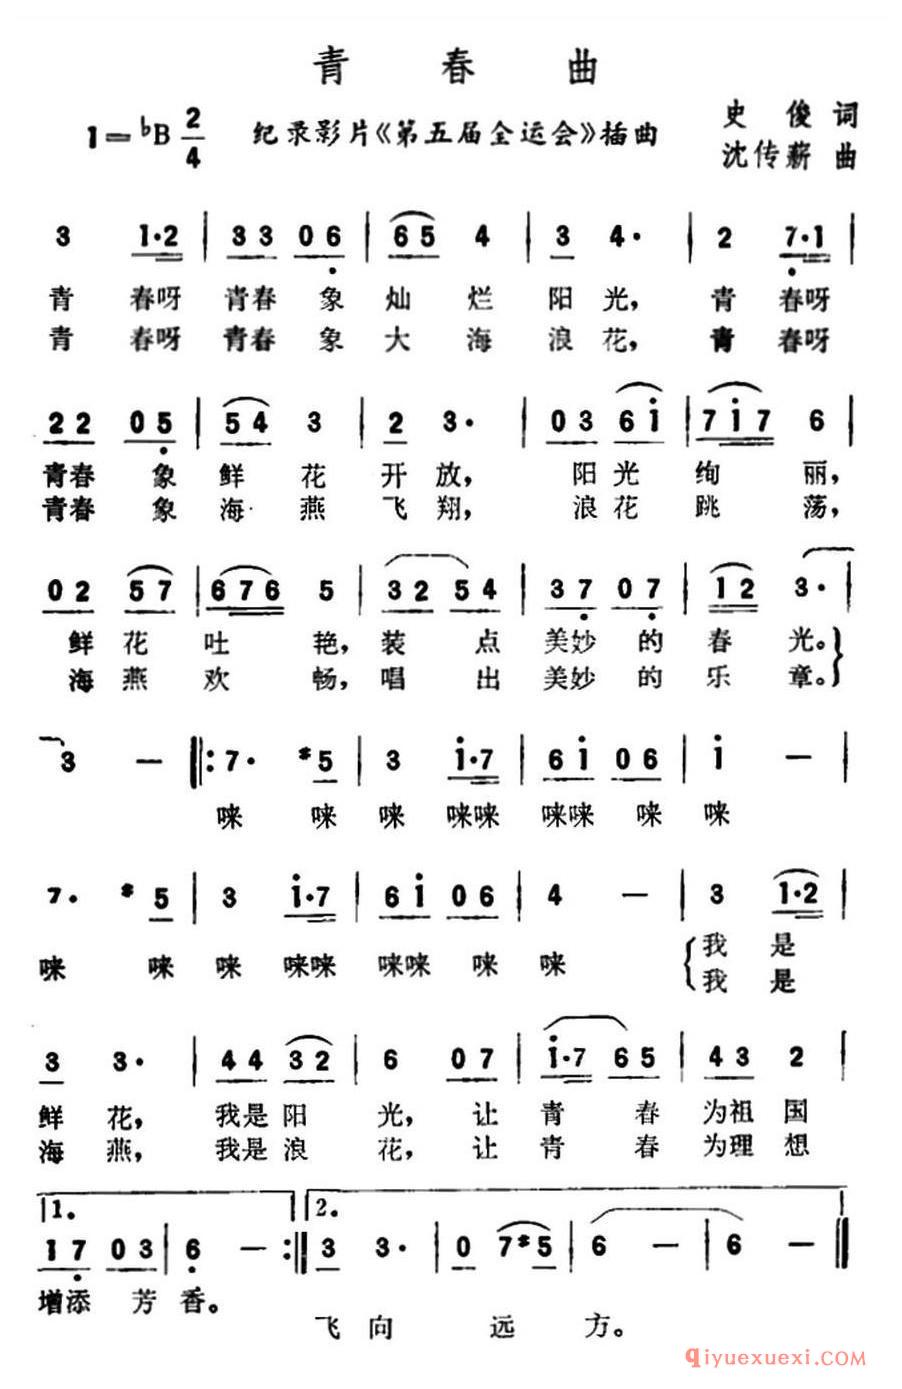 青 春 曲
1=♭B 2/4 纪录影片《第五届全运会》插曲 史 俊 词
沈传薪 曲
3 1·2 | 33 06 | 65 4 | 3 4· | 2 7·1 |
青 春呀 青春 象 灿 烂 阳 光， 青 春呀
青 春呀 青春 象 大 海 浪 花， 青 春呀
22 05 | 54 3 | 2 3· | 03 6i | 7i7 6 |
青春 象 鲜 花 开 放， 阳 光 绚 丽，
青春 象 海 燕 飞 翔， 浪 花 跳 荡，
02 57 | 676 5 | 32 54 | 37 07 | 12 3· |
鲜 花 吐 艳， 装 点 美妙 的 春 光。
海 燕 欢 畅， 唱 出 美妙 的 乐 章。
3 — ‖: 7· #5 | 3 i·7 | 6i 06 | i — |
唻 唻 唻 唻唻 唻唻 唻 唻
7· #5 | 3 i·7 | 6i 06 | 4 — | 3 1·2 |
唻 唻 唻 唻唻 唻唻 唻 唻 我 是
我 是
3 3· | 44 32 | 6 07 | i·7 65 | 43 2 |
鲜 花， 我是 阳 光， 让 青 春 为祖 国
海 燕， 我是 浪 花， 让 青 春 为理 想
1. 2.
17 03 | 6 — :‖ 3 3· | 0 7#5 | 6 — | 6 — ‖
增添 芳 香。
飞 向 远 方。
qiyuexuexi.com